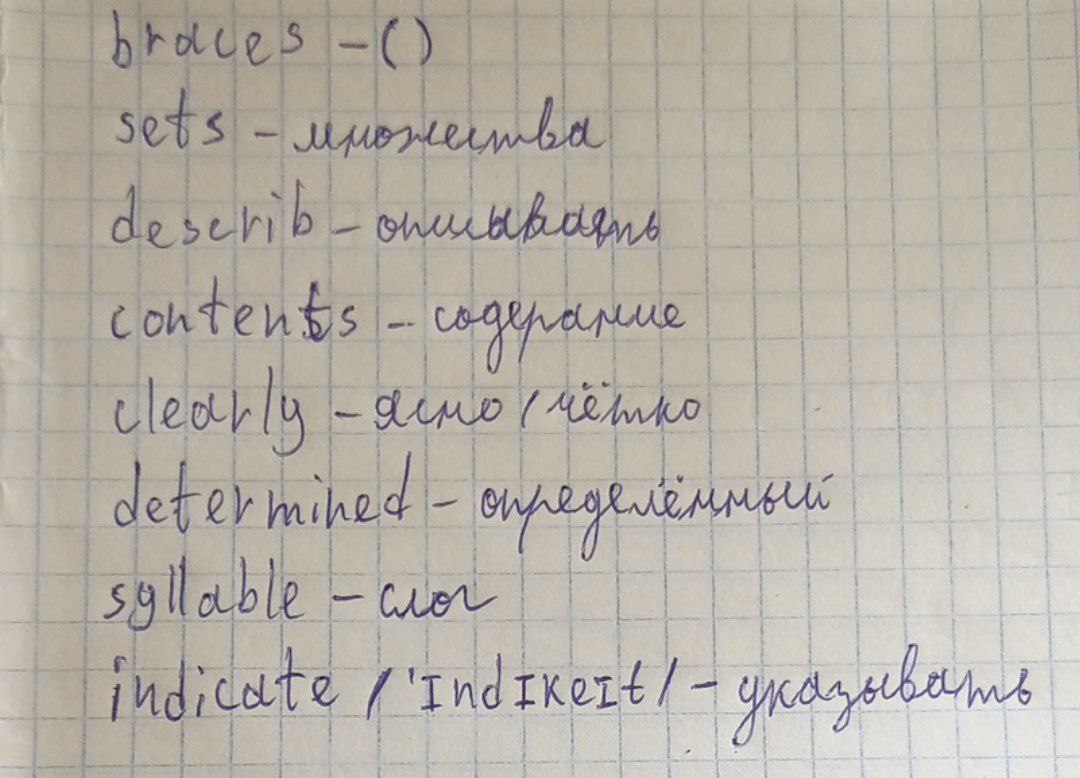 braces - ()
sets - множества
describ - описывать
contents - содерание
clearly - ясно / чётко
determined - определённый
syllable - слог
indicate / 'IndIкeIt / - указывать